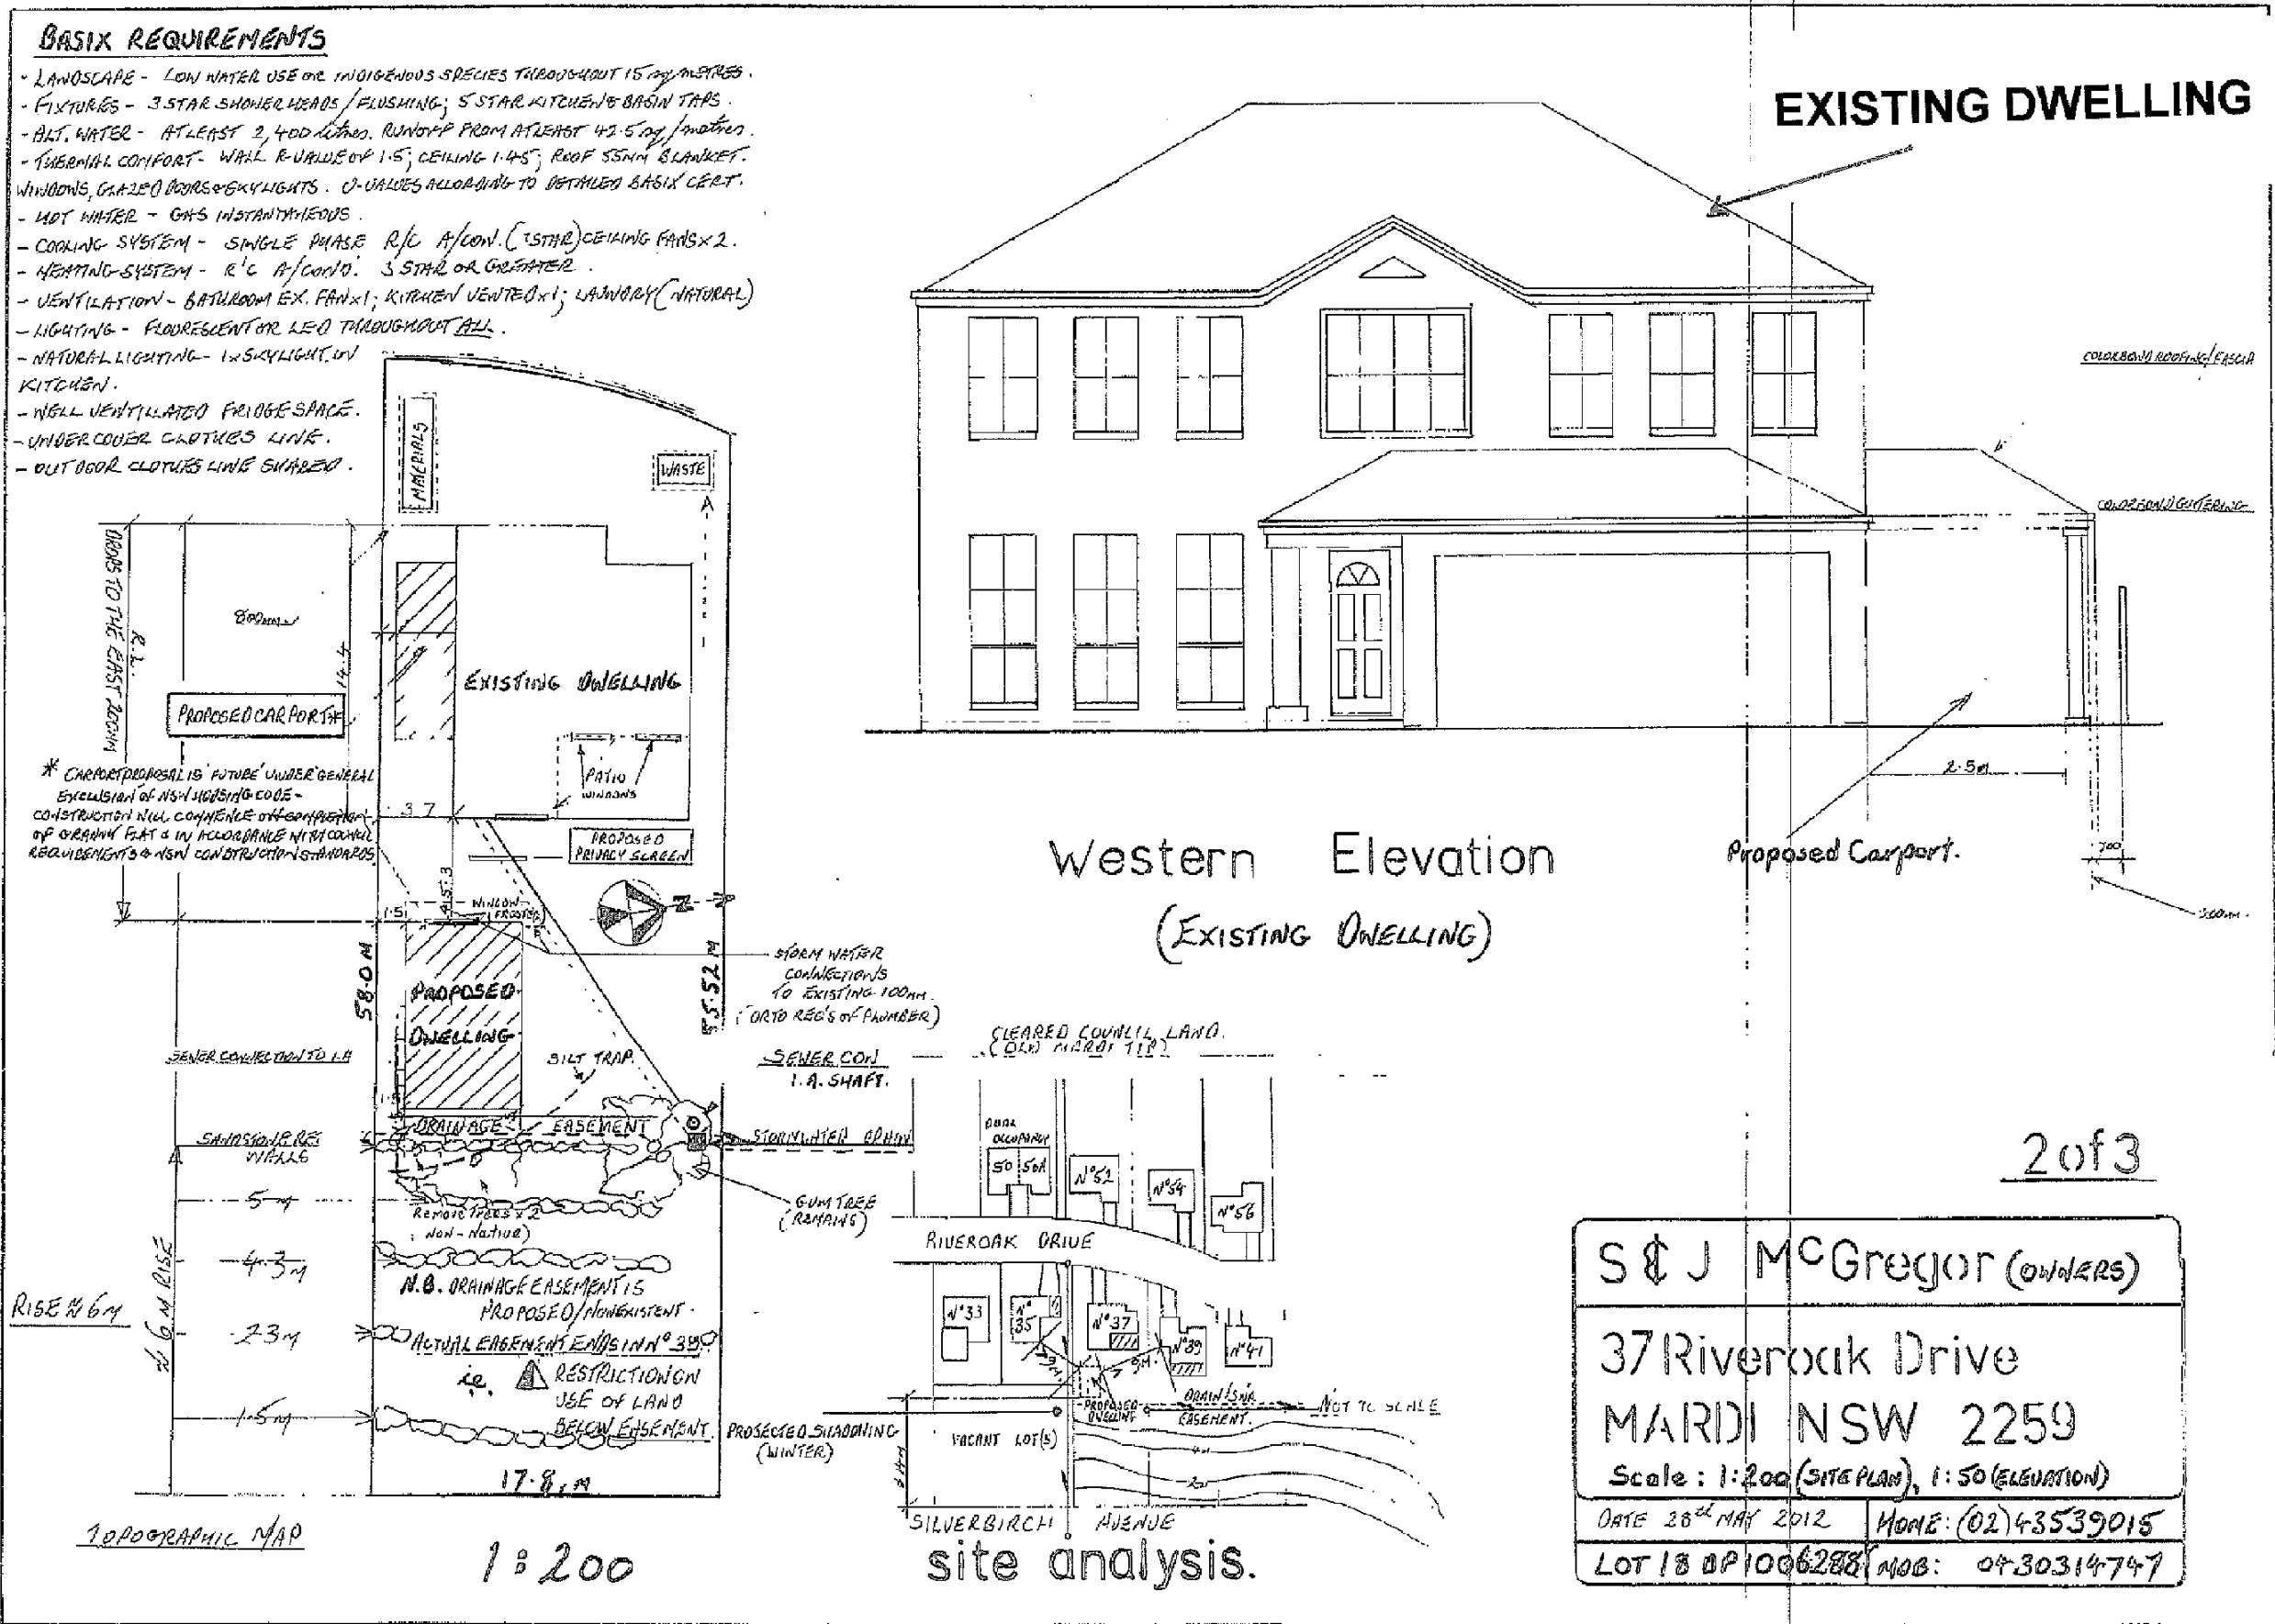 BASIX REQUIREMENTS
- LANDSCAPE - LOW WATER USE OR INDIGENOUS SPECIES THROUGHOUT 15 sq METRES.
- FIXTURES - 3 STAR SHOWER HEADS / FLUSHING; 5 STAR KITCHEN & BASIN TAPS.
- ALT. WATER - ATLEAST 2,400 litres. RUNOFF FROM ATLEAST 42.5 sq/metres.
- THERMAL COMFORT - WALL R-VALUE OF 1.5; CEILING 1.45; ROOF 55MM BLANKET.
WINDOWS, GLAZED DOORS & SKYLIGHTS. U-VALUES ACCORDING TO DETAILED BASIX CERT.
- HOT WATER - GAS INSTANTANEOUS.
- COOLING SYSTEM - SINGLE PHASE R/C A/CON. (3STAR) CEILING FANS X 2.
- HEATING SYSTEM - R/C A/COND. 3 STAR OR GREATER.
- VENTILATION - BATHROOM EX. FAN X1; KITCHEN VENTED X1; LAUNDRY (NATURAL)
- LIGHTING - FLOURESCENT OR LED THROUGHOUT ALL.
- NATURAL LIGHTING - 1 X SKYLIGHT IN
KITCHEN.
- WELL VENTILLATED FRIDGE SPACE.
- UNDERCOVER CLOTHES LINE.
- OUTDOOR CLOTHES LINE SHARED.
EXISTING DWELLING
COLORBOND ROOFING/FASCIA
COLORBOND GUTTERING
MATERIALS
WASTE
DROPS TO THE EAST 200MM
R.L.
800mm
14.4
EXISTING DWELLING
PROPOSED CARPORT*
PATIO
WINDOWS
* CARPORT PROPOSAL IS 'FUTURE' UNDER GENERAL
EXCLUSION OF NSW HOUSING CODE -
CONSTRUCTION WILL COMMENCE ON COMPLETION
OF GRANNY FLAT & IN ACCORDANCE WITH COUNCIL
REQUIREMENTS & NSW CONSTRUCTION STANDARDS
3.7
PROPOSED
PRIVACY SCREEN
N
1.5
WINDOW
FROSTED
58.0 M
55.52 M
PROPOSED
DWELLING
STORM WATER
CONNECTIONS
TO EXISTING 100MM.
(OR TO REG'S OF PLUMBER)
SEWER CONNECTION TO I.A
SILT TRAP.
SEWER CON
I.A. SHAFT.
1.5
DRAINAGE EASEMENT
SANDSTONE RET
WALLS
STORMWATER DRAIN
GUM TREE
(REMAINS)
5M
Remove Trees x 2
(Non-Native)
4.3M
N.B. DRAINAGE EASEMENT IS
PROPOSED/NONEXISTENT.
RISE ≈ 6M
≈ 6 M RISE
2.3M
ACTUAL EASEMENT ENDS IN Nº 39
ie. RESTRICTION ON
USE OF LAND
BELOW EASEMENT.
1.5M
17.8, M
TOPOGRAPHIC MAP
1:200
Western Elevation
(EXISTING DWELLING)
2.5M
Proposed Carport.
700
CLEARED COUNCIL LAND.
(OLD MARDI TIP)
DUAL
OCCUPANCY
50 50A
Nº52
Nº54
Nº56
RIVEROAK DRIVE
Nº33
Nº
35
Nº37
Nº39
Nº41
PROPOSED
DWELLING
EASEMENT.
NOT TO SCALE
PROJECTED SHADOWING
(WINTER)
VACANT LOT(S)
SILVERBIRCH AVENUE
site analysis.
2 of 3
S & J McGregor (OWNERS)
37 Riveroak Drive
MARDI NSW 2259
Scale: 1:200 (SITE PLAN), 1:50 (ELEVATION)
DATE 28th MAY 2012
HOME: (02) 43539015
LOT 18 DP1006288
MOB: 0430314747